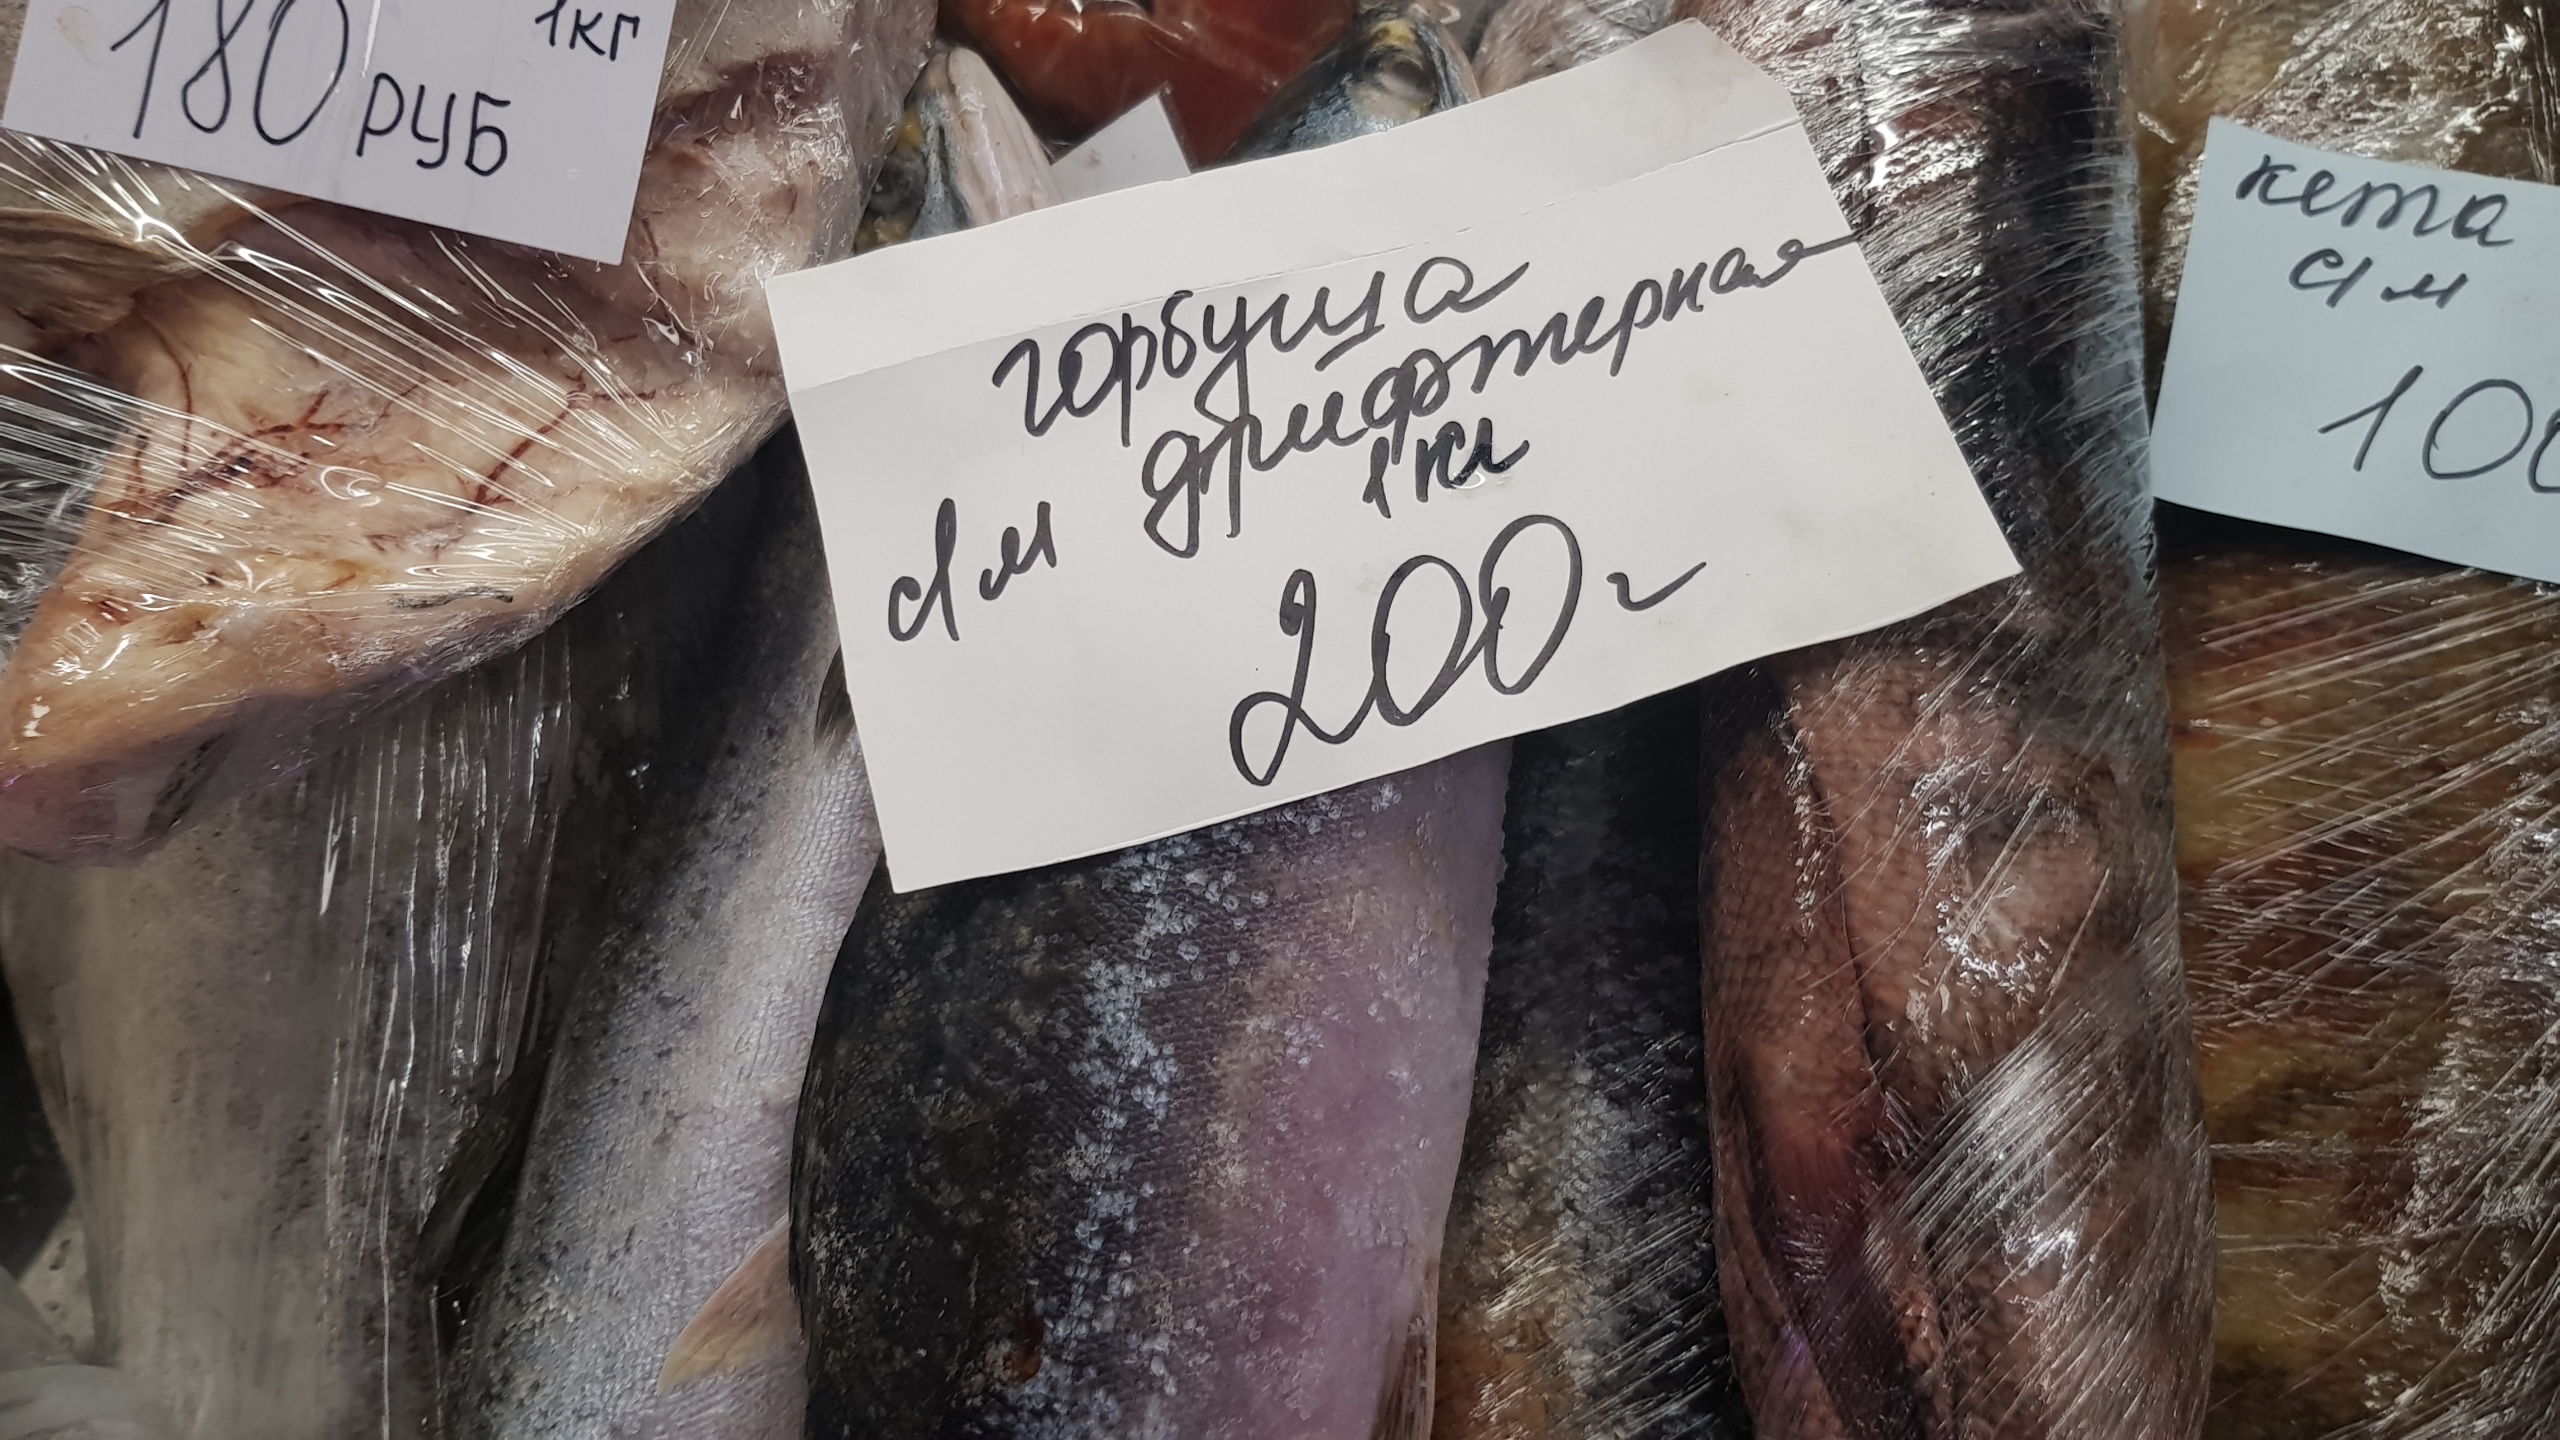 180 руб
1кг
горбуша
с/м дрифтерная
1 кг
200-
кета
с/м
100